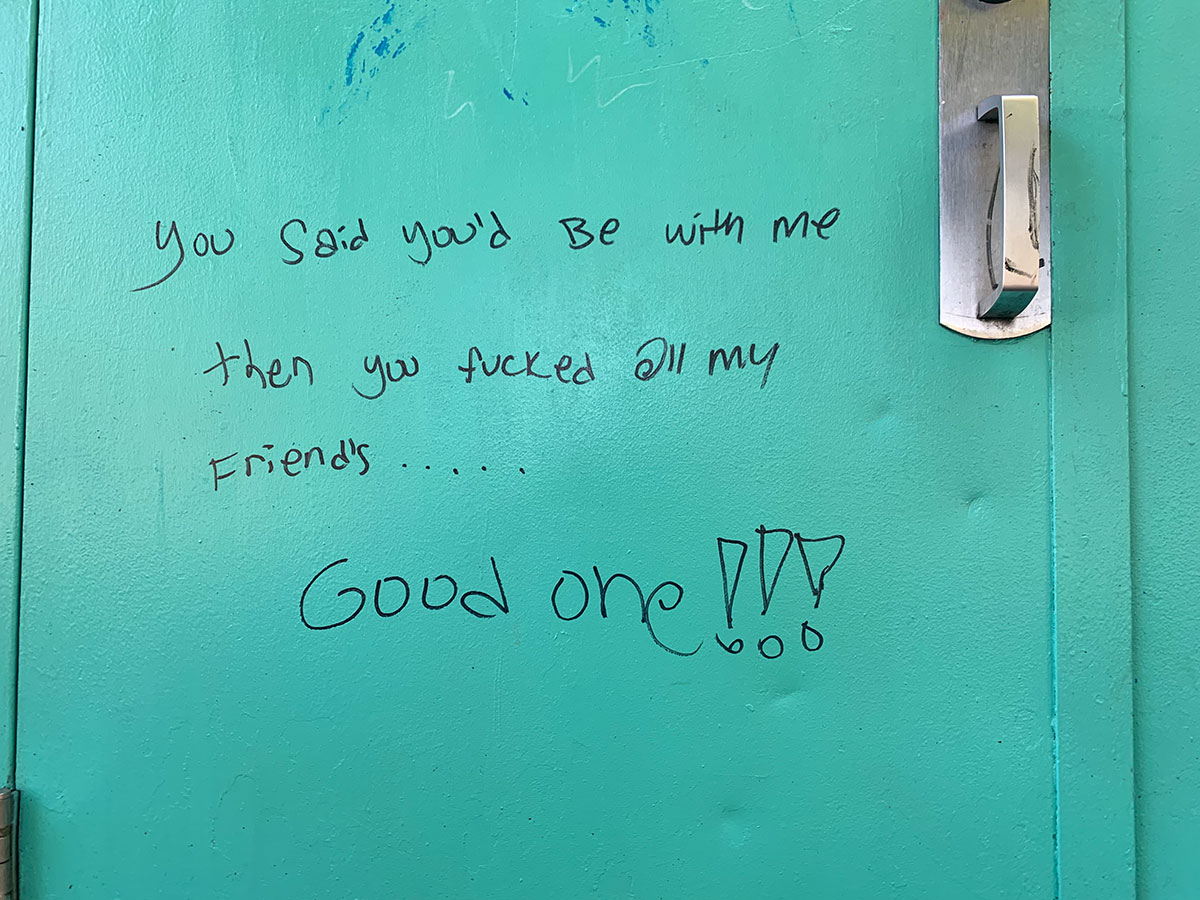 you said you'd Be with me
then you fucked all my
Friend's .....
Good one !!!